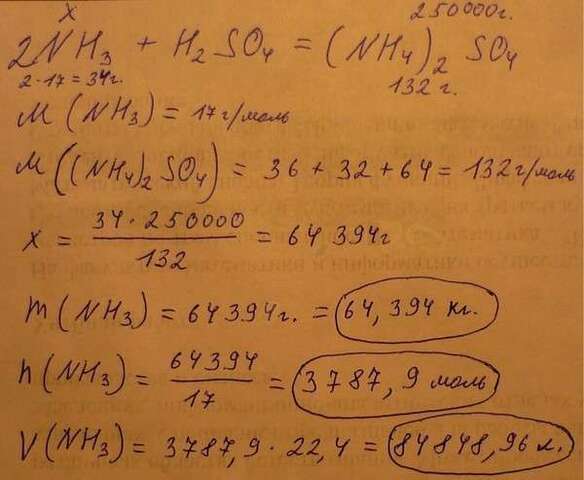 x 250000г.
2NH3 + H2SO4 = (NH4)2 SO4
2·17=34г. 132 г.
M(NH3) = 17г/моль
M((NH4)2SO4) = 36 + 32 + 64 = 132г/моль
x = 34·250000 / 132 = 64 394г
m(NH3) = 64394г. = 64,394 кг.
n(NH3) = 64394 / 17 = 3787,9 моль
V(NH3) = 3787,9·22,4 = 84848,96 л.